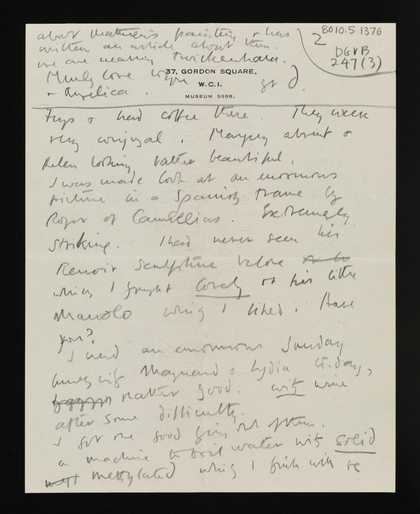 about Matthew's painting & has
written an article about them.
we are nearing Twickenham.
Much love to you
& Angelica. yr D.
2
8010.5.1376
DG VB
247 (3)
37, GORDON SQUARE,
W.C.1.
MUSEUM
Frys & had coffee there. They were
very conjugal. Margery about &
Helen looking rather beautiful.
I was made look at an enormous
picture in a Spanish frame by
Roger of Camellias. Extremely
striking. I had never seen his
Renoir sculpture before
which I thought lovely or his little
Manolo which I liked. Have
you?
I had an enormous Sunday
lunch with Maynard & Lydia today,
rather good. with wine
after some difficulty.
I got one good out of them.
a machine to boil water with solid
methylated which I think will be